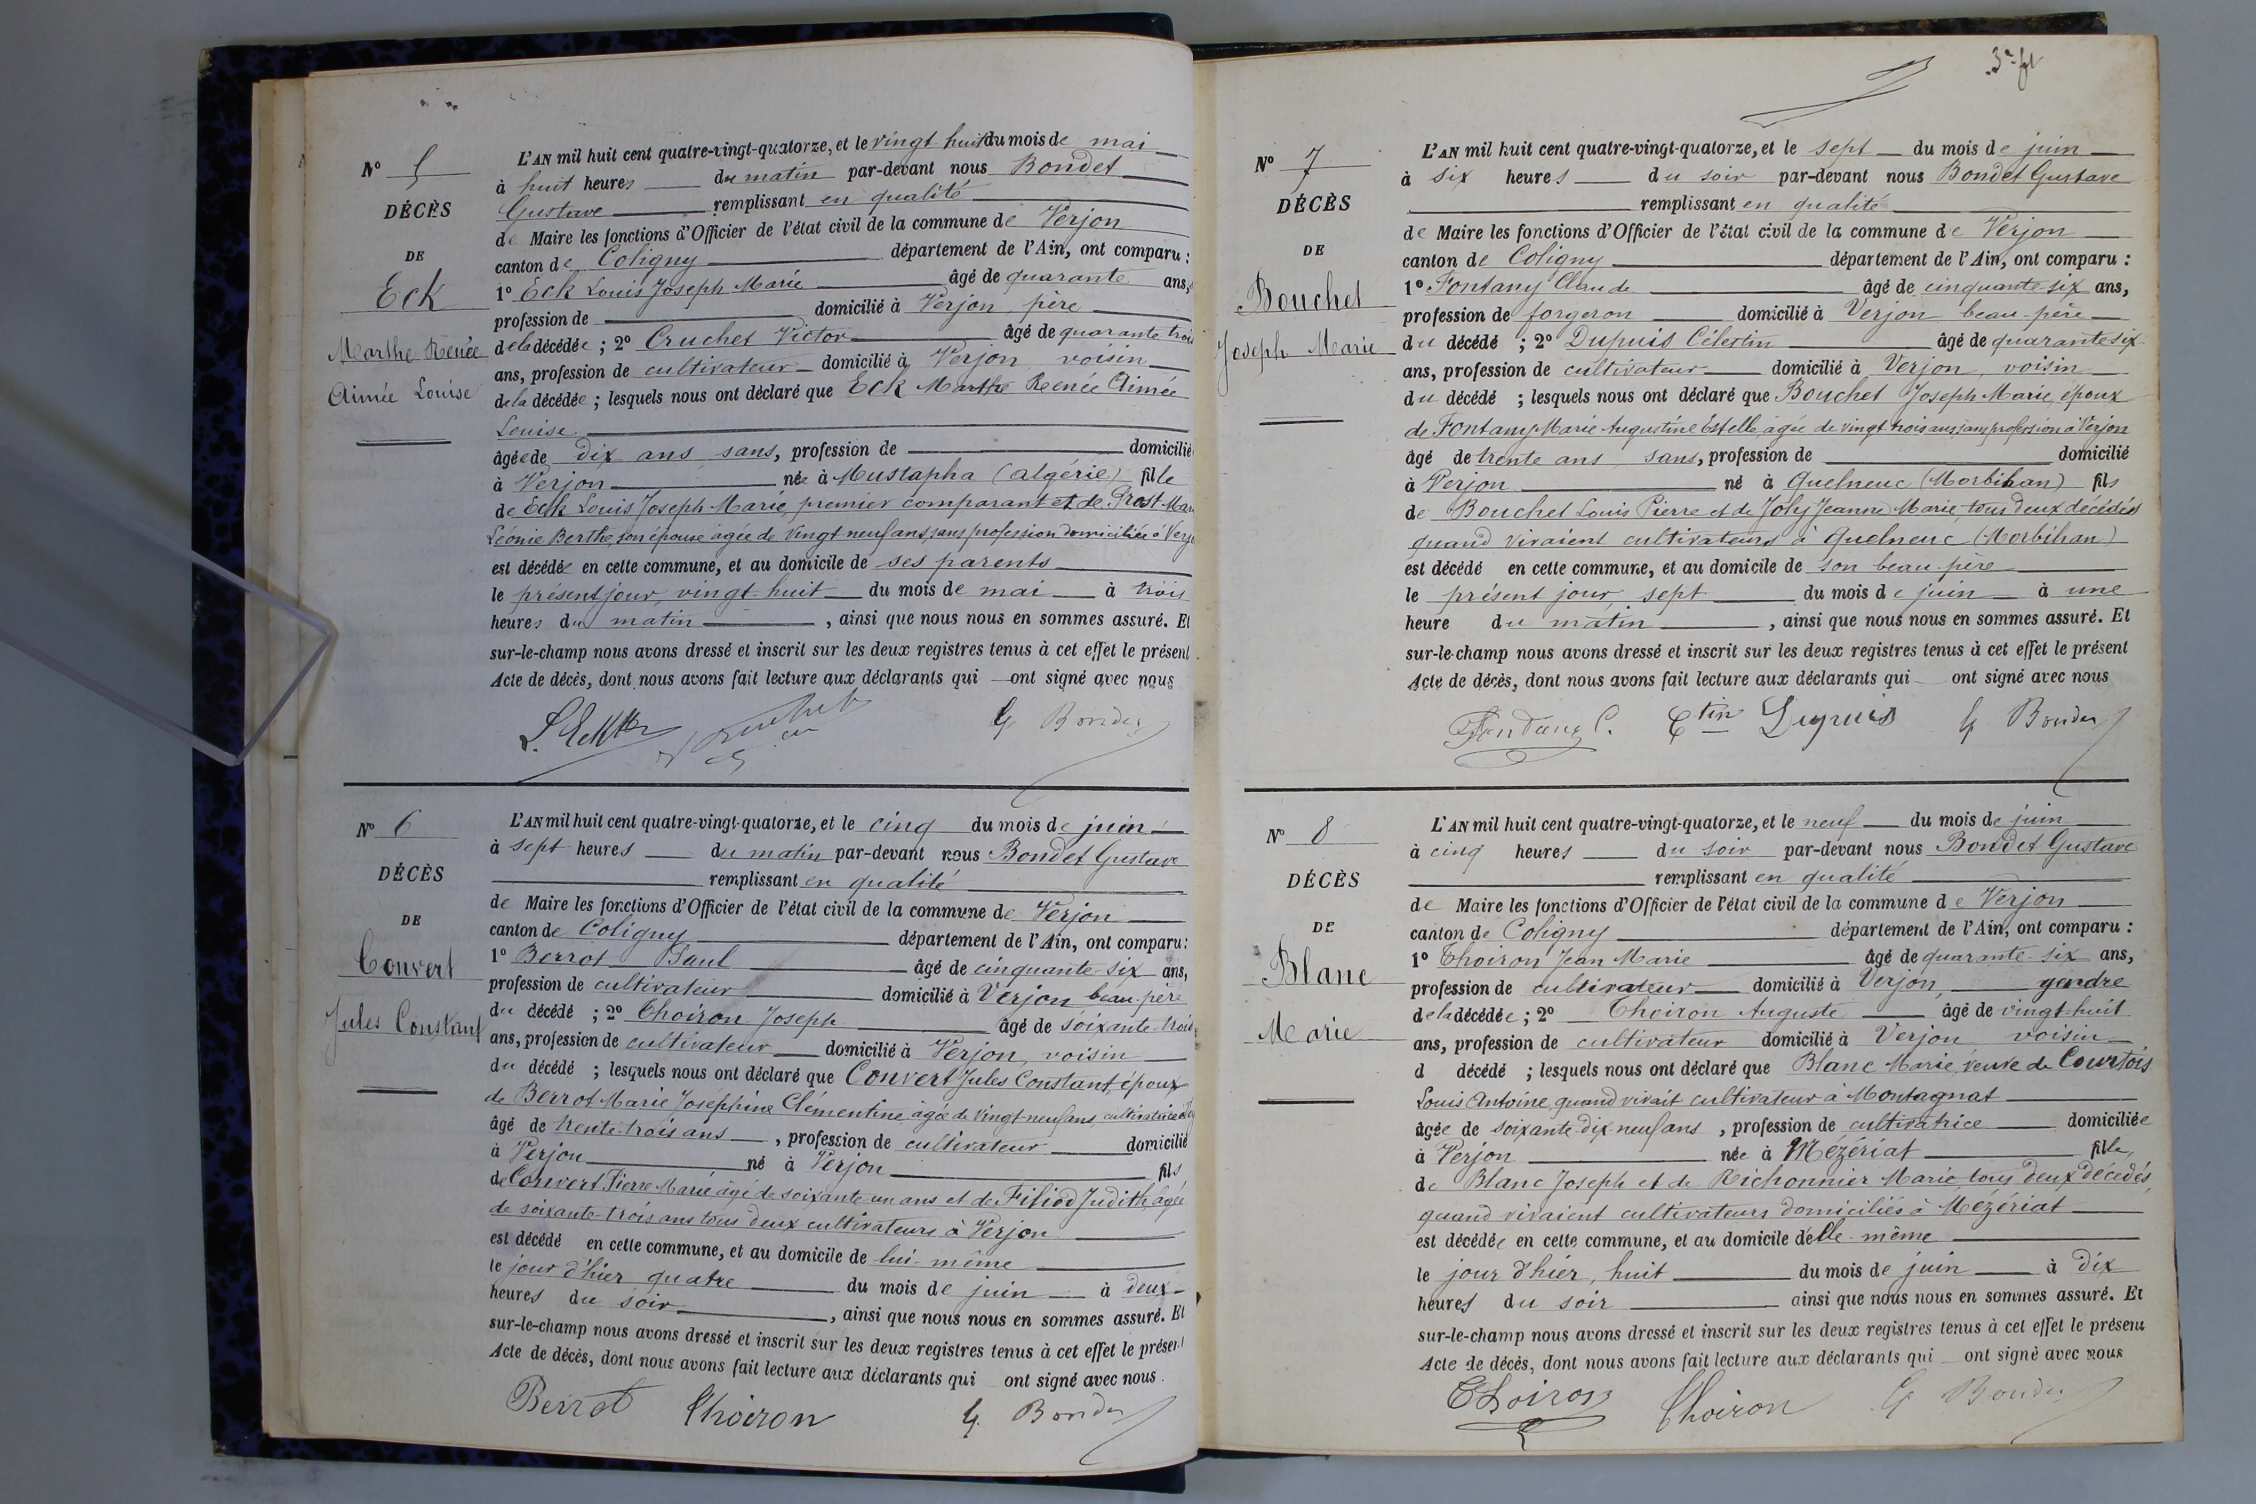 N° 5
DÉCÈS
DE
Eck
Marthe Renée
Aimée Louise
L'AN mil huit cent quatre-vingt-quatorze, et le vingt huit du mois de mai
à huit heures du matin par-devant nous Bondet
Gustave remplissant en qualité
de Maire les fonctions d'Officier de l'état civil de la commune de Verjon
canton de Coligny département de l'Ain, ont comparu :
1° Eck Louis Joseph Marie âgé de quarante ans,
profession de domicilié à Verjon, père
de la décédée ; 2° Cruchet Victor âgé de quarante trois
ans, profession de cultivateur domicilié à Verjon, voisin
de la décédée ; lesquels nous ont déclaré que Eck Marthe Renée Aimée
Louise
âgée de dix ans, sans, profession de domicilié
à Verjon née à Mustapha (Algérie) fille
de Eck Louis Joseph Marie, premier comparant et de Prost Mar
Léonie Berthe, son épouse âgée de vingt neuf ans, sans profession domiciliée à Verj
est décédée en cette commune, et au domicile de ses parents
le présent jour, vingt huit du mois de mai à trois
heures du matin , ainsi que nous nous en sommes assuré. Et
sur-le-champ nous avons dressé et inscrit sur les deux registres tenus à cet effet le présent
Acte de décès, dont nous avons fait lecture aux déclarants qui ont signé avec nous
G Bondet
N° 6
DÉCÈS
DE
Convert
Jules Constant
L'AN mil huit cent quatre-vingt-quatorze, et le cinq du mois de juin
à sept heures du matin par-devant nous Bondet Gustave
remplissant en qualité
de Maire les fonctions d'Officier de l'état civil de la commune de Verjon
canton de Coligny département de l'Ain, ont comparu :
1° Berrot Paul âgé de cinquante-six ans,
profession de cultivateur domicilié à Verjon beau-père
du décédé ; 2° Thoiron Joseph âgé de soixante-trois
ans, profession de cultivateur domicilié à Verjon, voisin
du décédé ; lesquels nous ont déclaré que Convert Jules Constant, époux
de Berrot Marie Joséphine Clémentine âgée de vingt neuf ans cultivatrice
âgé de trente-trois ans , profession de cultivateur domicilié
à Verjon né à Verjon fils
de Convert Pierre Marie âgé de soixante un ans et de Filiod Judith, âgée
de soixante-trois ans tous deux cultivateurs à Verjon
est décédé en cette commune, et au domicile de lui-même
le jour d'hier quatre du mois de juin à deux
heures du soir , ainsi que nous nous en sommes assuré. Et
sur-le-champ nous avons dressé et inscrit sur les deux registres tenus à cet effet le présent
Acte de décès, dont nous avons fait lecture aux déclarants qui ont signé avec nous.
Berrot Thoiron G Bondet
N° 7
DÉCÈS
DE
Bouchet
Joseph Marie
L'AN mil huit cent quatre-vingt-quatorze, et le sept du mois de juin
à six heures du soir par-devant nous Bondet Gustave
remplissant en qualité
de Maire les fonctions d'Officier de l'état civil de la commune de Verjon
canton de Coligny département de l'Ain, ont comparu :
1° Fontany Claude âgé de cinquante six ans,
profession de forgeron domicilié à Verjon beau-père
du décédé ; 2° Dupuis Célestin âgé de quarante six
ans, profession de cultivateur domicilié à Verjon, voisin
du décédé ; lesquels nous ont déclaré que Bouchet Joseph Marie, époux
de Fontany Marie Augustine Estelle, âgée de vingt trois ans, sans profession à Verjon
âgé de trente ans sans, profession de domicilié
à Verjon né à Quelneuc (Morbihan) fils
de Bouchet Louis Pierre et de Joly Jeanne Marie, tous deux décédés
quand vivaient cultivateurs à Quelneuc (Morbihan)
est décédé en cette commune, et au domicile de son beau-père
le présent jour, sept du mois de juin à une
heure du matin , ainsi que nous nous en sommes assuré. Et
sur-le-champ nous avons dressé et inscrit sur les deux registres tenus à cet effet le présent
Acte de décès, dont nous avons fait lecture aux déclarants qui ont signé avec nous
Fontany C. Ctin Dupuis G Bondet
N° 8
DÉCÈS
DE
Blanc
Marie
L'AN mil huit cent quatre-vingt-quatorze, et le neuf du mois de juin
à cinq heures du soir par-devant nous Bondet Gustave
remplissant en qualité
de Maire les fonctions d'Officier de l'état civil de la commune de Verjon
canton de Coligny département de l'Ain, ont comparu :
1° Thoiron Jean Marie âgé de quarante-six ans,
profession de cultivateur domicilié à Verjon, gendre
de la décédée ; 2° Thoiron Auguste âgé de vingt-huit
ans, profession de cultivateur domicilié à Verjon voisin
d décédé ; lesquels nous ont déclaré que Blanc Marie, veuve de Courtois
Louis Antoine, quand vivait cultivateur à Montagnat
âgée de soixante-dix neuf ans , profession de cultivatrice domiciliée
à Verjon née à Mézériat fille
de Blanc Joseph et de Richonnier Marie, tous deux décédés,
quand vivaient cultivateurs domiciliés à Mézériat
est décédée en cette commune, et au domicile d'elle-même
le jour d'hier, huit du mois de juin à dix
heures du soir ainsi que nous nous en sommes assuré. Et
sur-le-champ nous avons dressé et inscrit sur les deux registres tenus à cet effet le présent
Acte de décès, dont nous avons fait lecture aux déclarants qui ont signé avec nous
Thoiron Thoiron G Bondet